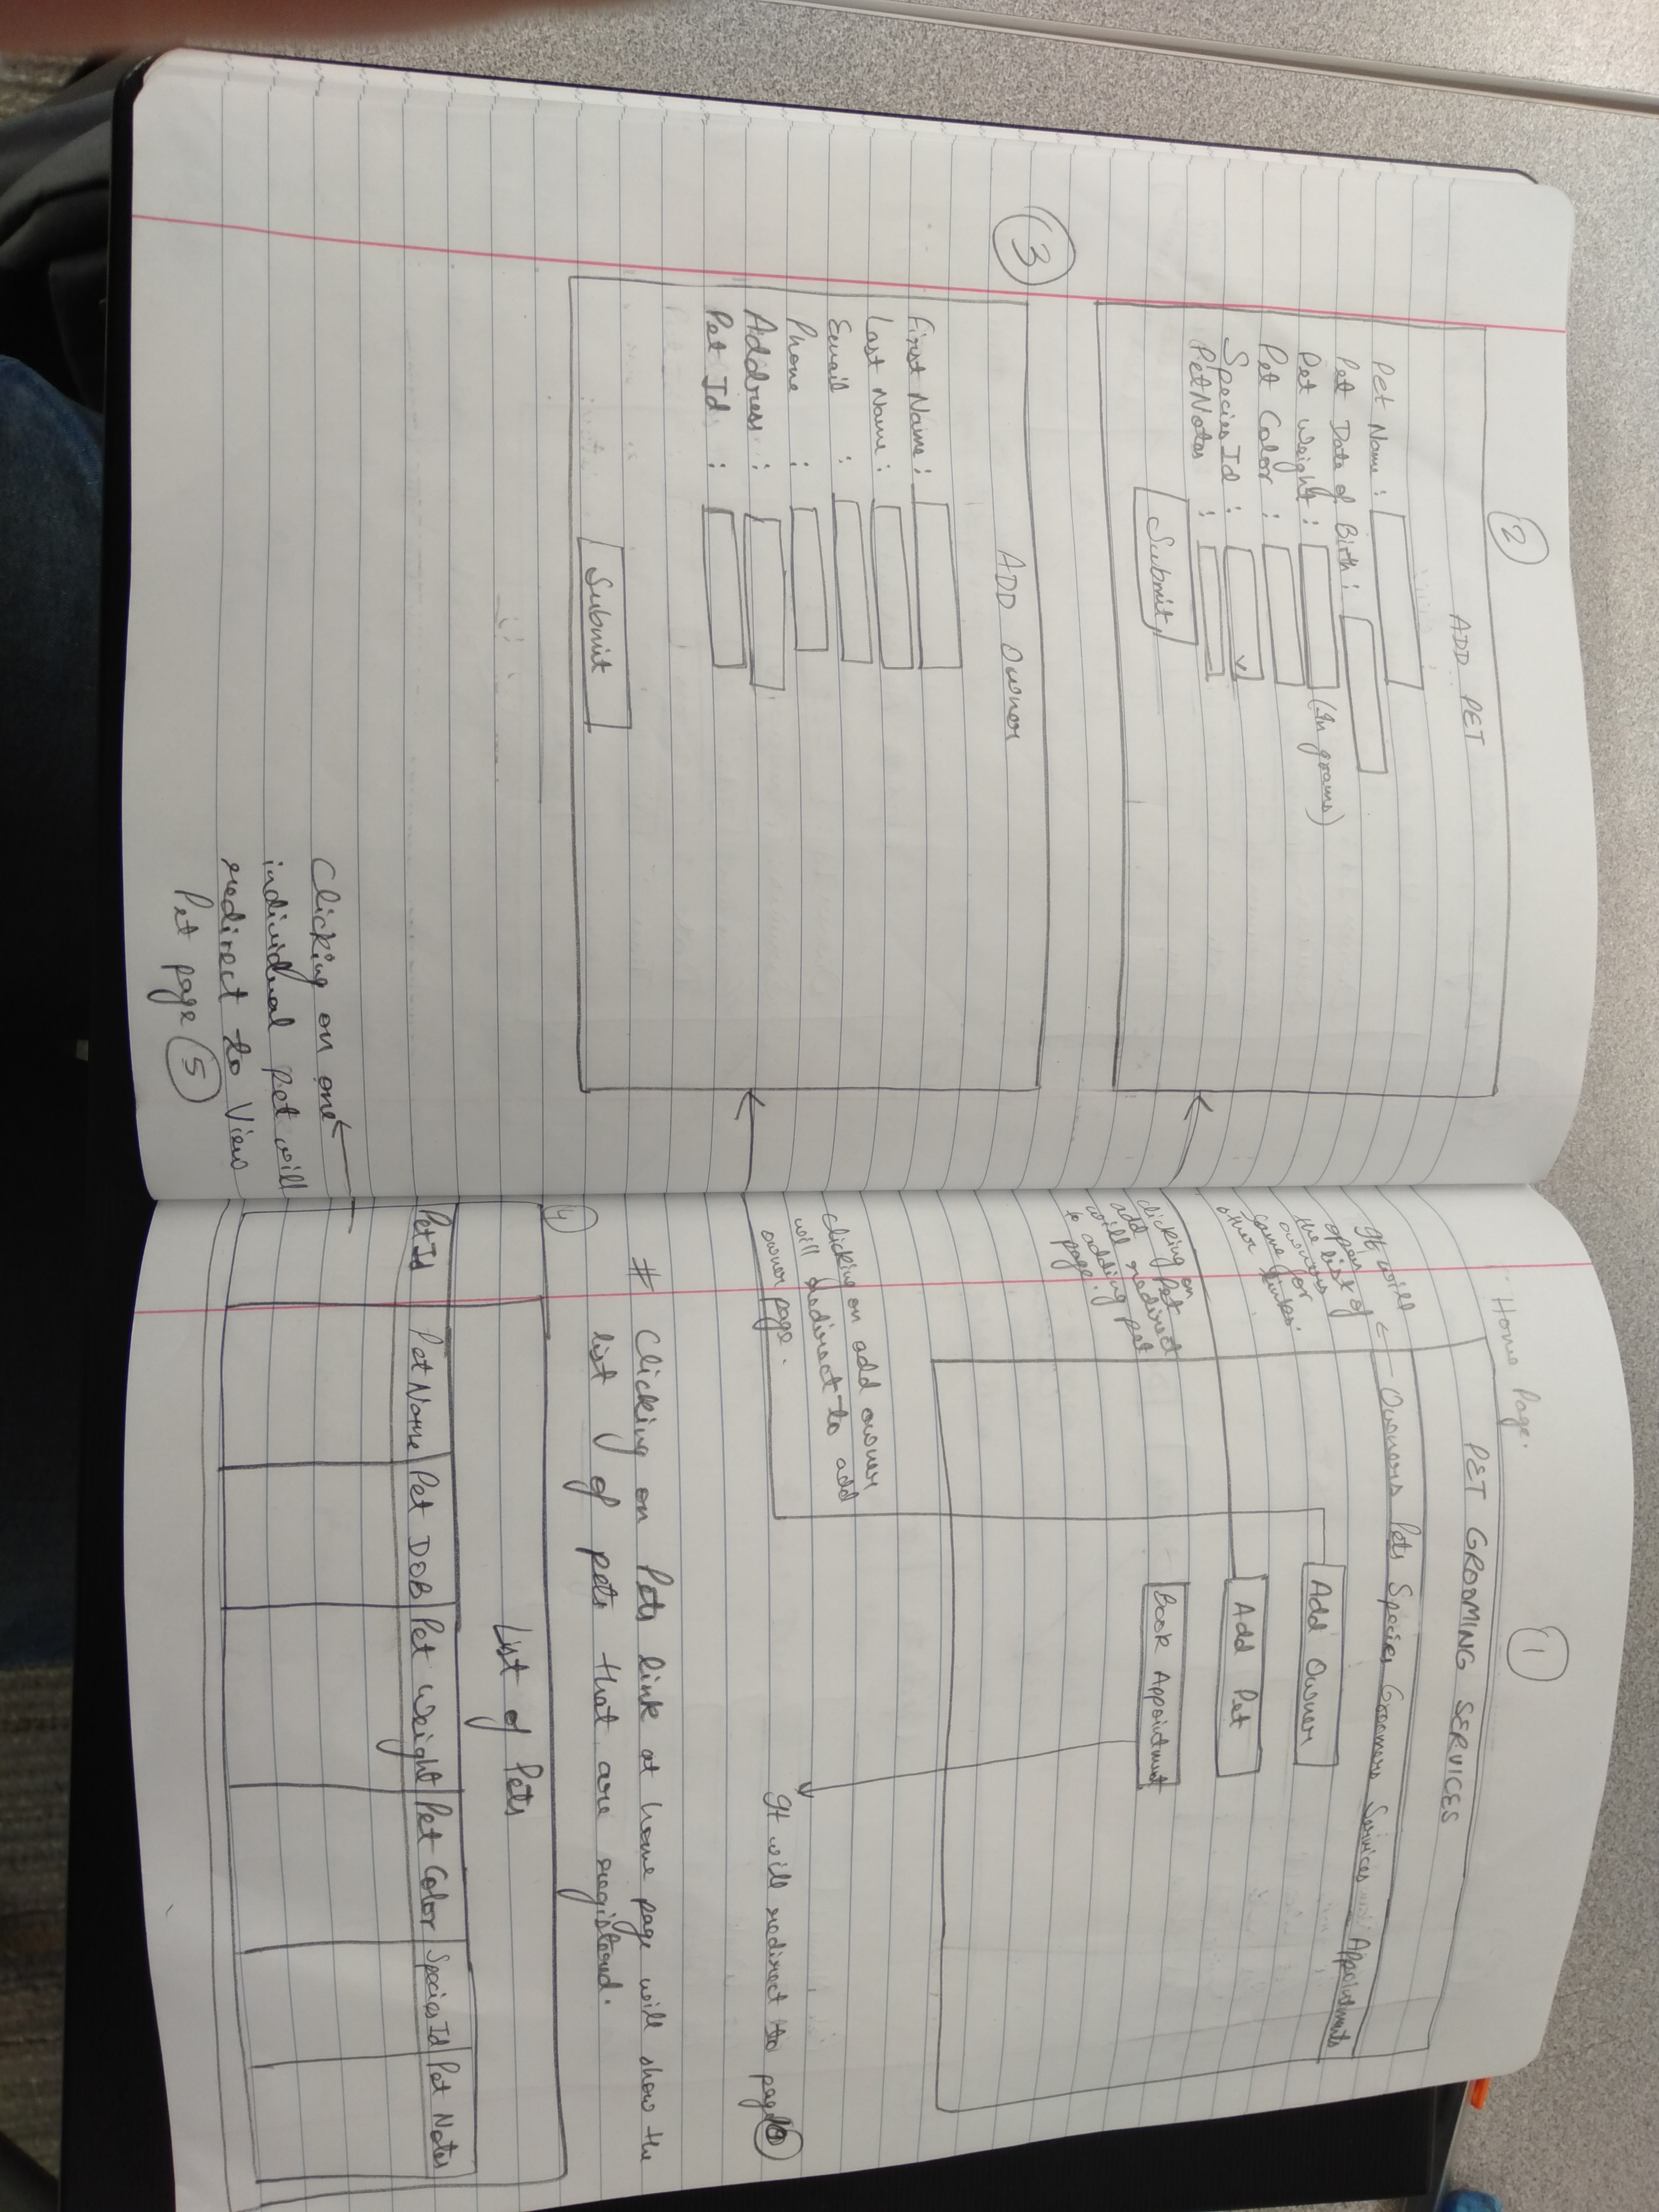 2
ADD PET
Pet Name :
Pet Date of Birth :
Pet Weight : (In grams)
Pet Color :
Species Id :
Pet Notes :
Submit
3
ADD Owner
First Name :
Last Name :
Email :
Phone :
Address :
Pet Id :
Submit
Clicking on one
individual pet will
redirect to View
Pet page 5
1
Home Page.
PET GROOMING SERVICES
Owners Pets Species Groomers Services Appointments
It will
open
the list of
owners
same for
other links.
Add Owner
Add Pet
Book Appointment
clicking on
add Pet
will redirect
to adding pet
page.
clicking on add owner
will redirect to add
owner page.
It will redirect to page
# Clicking on Pets link at home page will show the
list of pets that are registered.
4
List of Pets
Pet Id Pet Name Pet DOB Pet Weight Pet Color Species Id Pet Notes